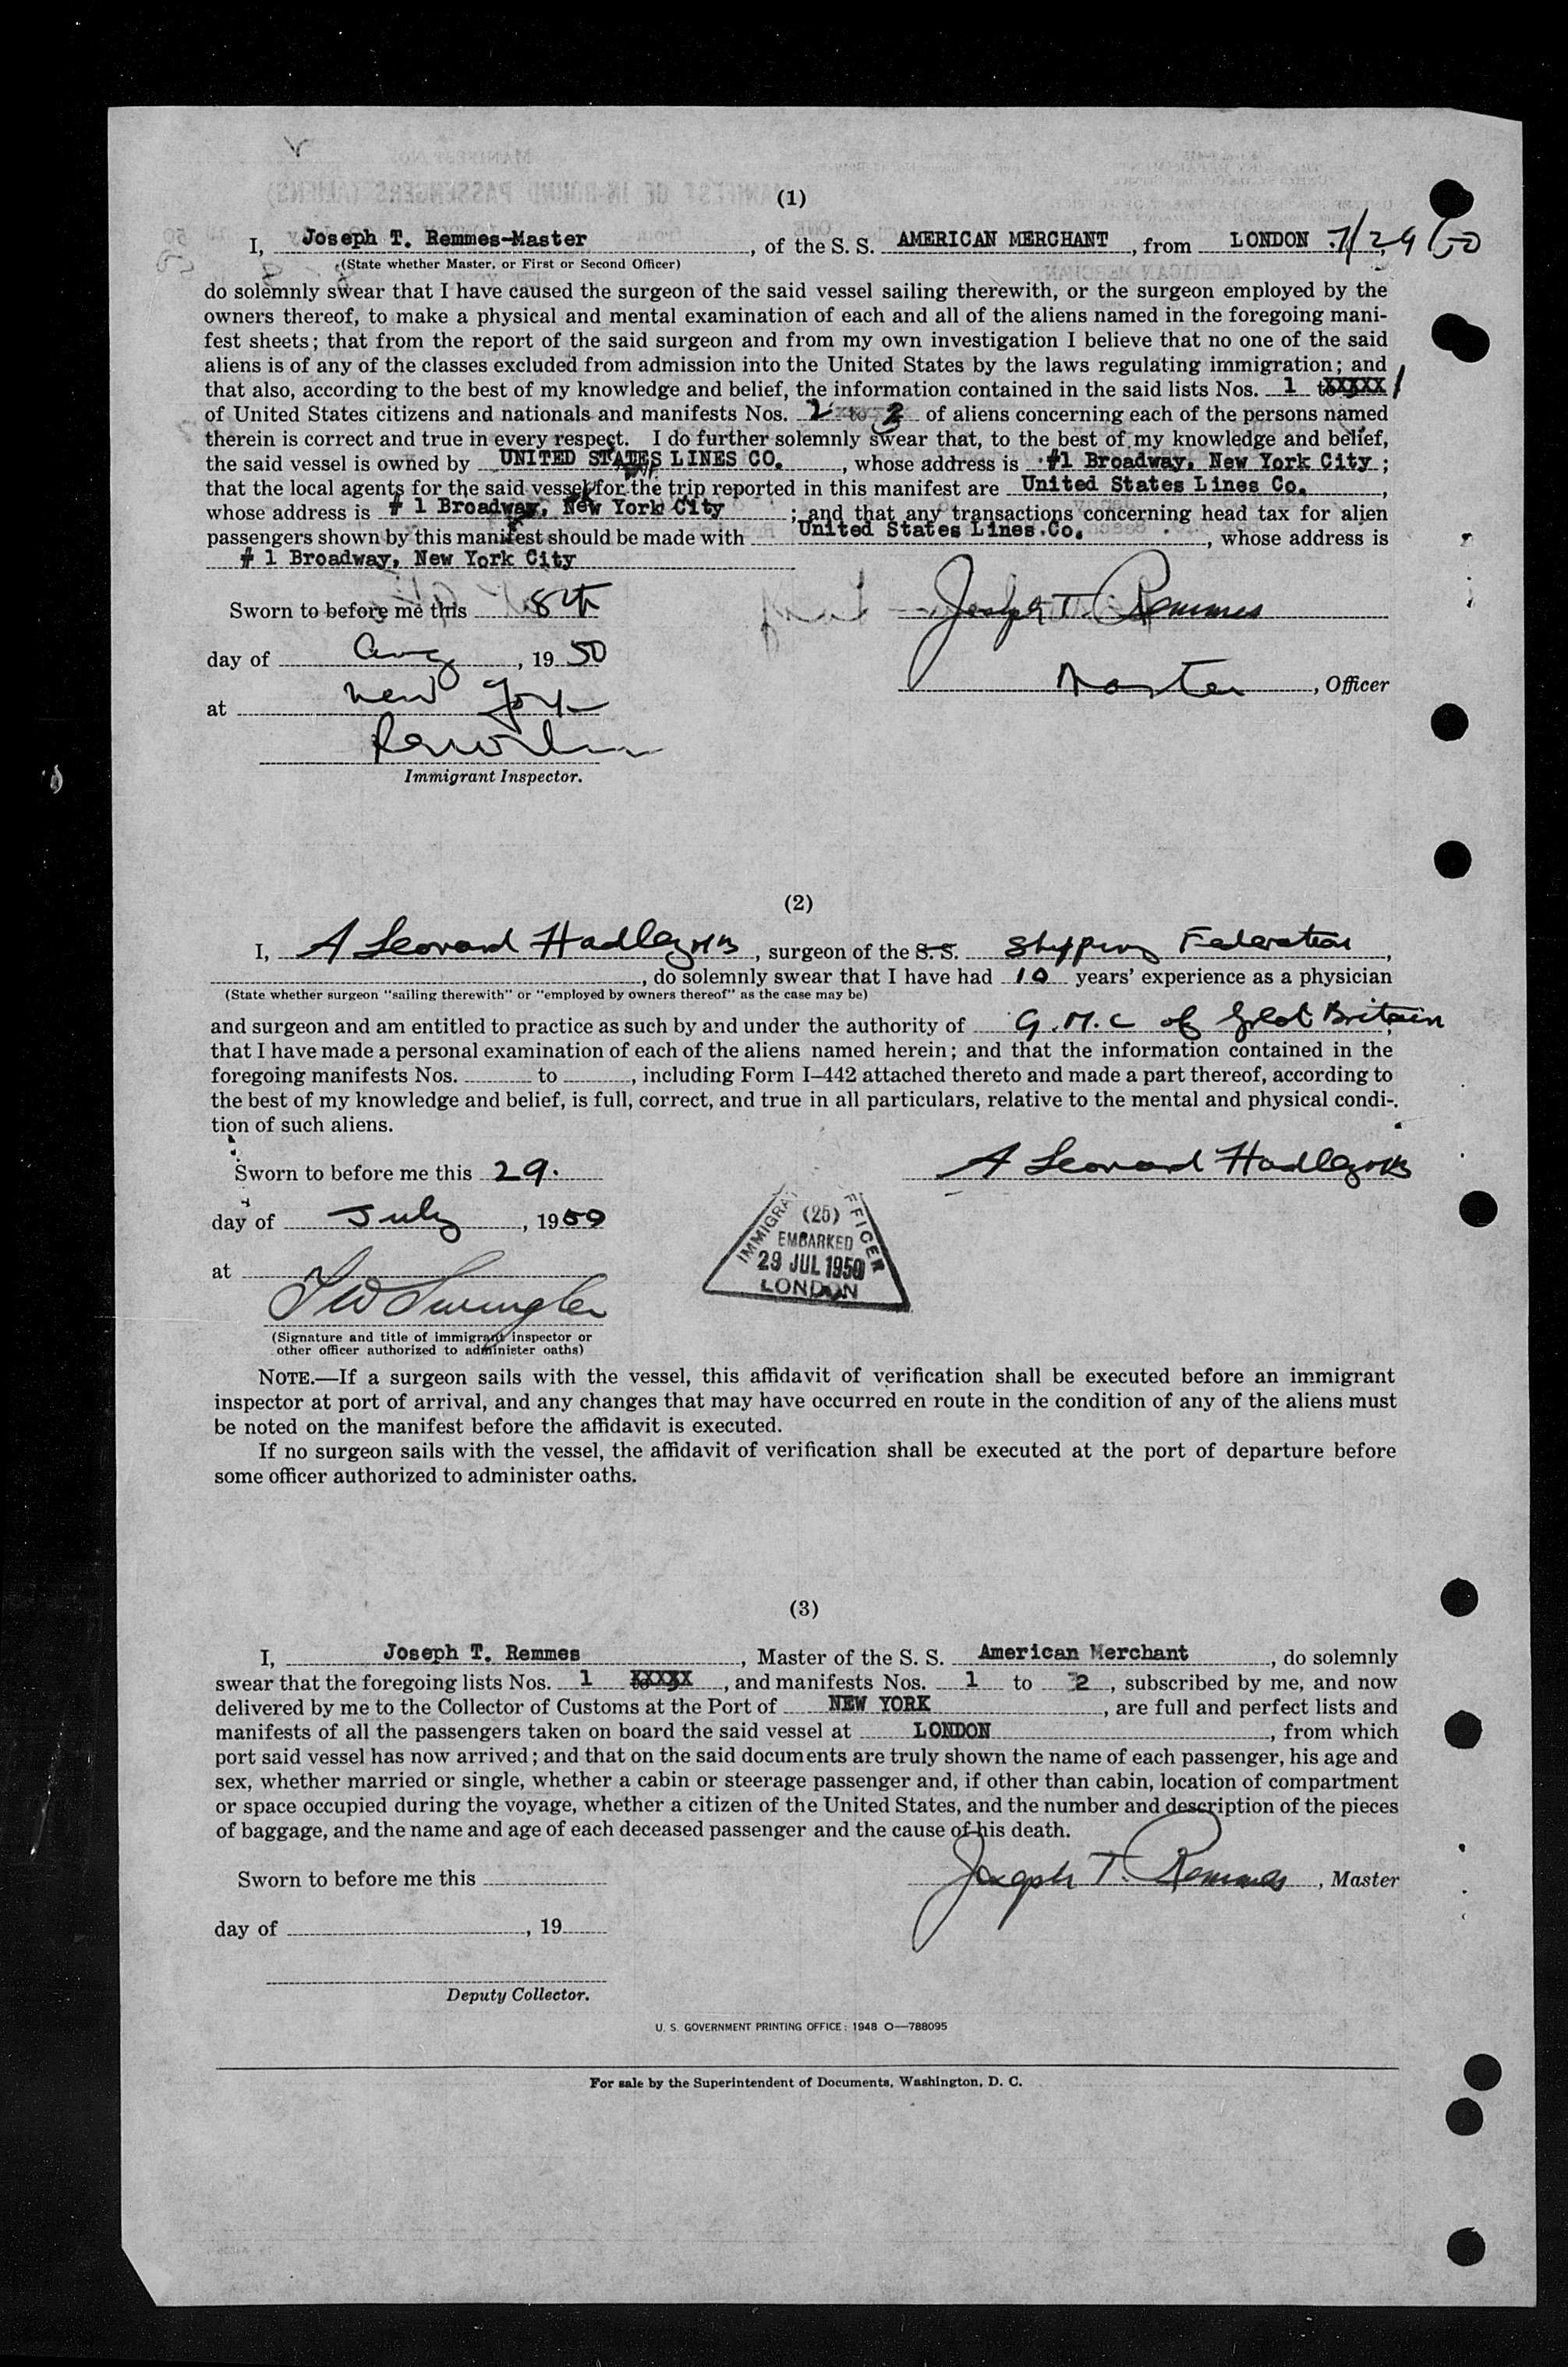 (1)
I, Joseph T. Remmes-Master, of the S. S. AMERICAN MERCHANT, from LONDON 7/29/50
(State whether Master, or First or Second Officer)
do solemnly swear that I have caused the surgeon of the said vessel sailing therewith, or the surgeon employed by the
owners thereof, to make a physical and mental examination of each and all of the aliens named in the foregoing mani-
fest sheets; that from the report of the said surgeon and from my own investigation I believe that no one of the said
aliens is of any of the classes excluded from admission into the United States by the laws regulating immigration; and
that also, according to the best of my knowledge and belief, the information contained in the said lists Nos. 1 to XXXXX
of United States citizens and nationals and manifests Nos. 2 to 3 of aliens concerning each of the persons named
therein is correct and true in every respect. I do further solemnly swear that, to the best of my knowledge and belief,
the said vessel is owned by UNITED STATES LINES CO., whose address is #1 Broadway, New York City;
that the local agents for the said vessel for the trip reported in this manifest are United States Lines Co.,
whose address is # 1 Broadway, New York City; and that any transactions concerning head tax for alien
passengers shown by this manifest should be made with United States Lines Co., whose address is
# 1 Broadway, New York City
Sworn to before me this 8th Joseph T. Remmes
day of Aug, 1950
Master, Officer
at New York
Immigrant Inspector.
(2)
I, A Leonard Hadley, surgeon of the S. S. Shipping Federation,
, do solemnly swear that I have had 10 years' experience as a physician
(State whether surgeon "sailing therewith" or "employed by owners thereof" as the case may be)
and surgeon and am entitled to practice as such by and under the authority of G.M.C of Great Britain,
that I have made a personal examination of each of the aliens named herein; and that the information contained in the
foregoing manifests Nos. to , including Form I-442 attached thereto and made a part thereof, according to
the best of my knowledge and belief, is full, correct, and true in all particulars, relative to the mental and physical condi-
tion of such aliens.
Sworn to before me this 29. A Leonard Hadley
day of July, 1950
IMMIGRATION OFFICER
(25)
EMBARKED
29 JUL 1950
LONDON
at
(Signature and title of immigrant inspector or
other officer authorized to administer oaths)
NOTE.—If a surgeon sails with the vessel, this affidavit of verification shall be executed before an immigrant
inspector at port of arrival, and any changes that may have occurred en route in the condition of any of the aliens must
be noted on the manifest before the affidavit is executed.
If no surgeon sails with the vessel, the affidavit of verification shall be executed at the port of departure before
some officer authorized to administer oaths.
(3)
I, Joseph T. Remmes, Master of the S. S. American Merchant, do solemnly
swear that the foregoing lists Nos. 1 XXXXX, and manifests Nos. 1 to 2, subscribed by me, and now
delivered by me to the Collector of Customs at the Port of NEW YORK, are full and perfect lists and
manifests of all the passengers taken on board the said vessel at LONDON, from which
port said vessel has now arrived; and that on the said documents are truly shown the name of each passenger, his age and
sex, whether married or single, whether a cabin or steerage passenger and, if other than cabin, location of compartment
or space occupied during the voyage, whether a citizen of the United States, and the number and description of the pieces
of baggage, and the name and age of each deceased passenger and the cause of his death.
Sworn to before me this Joseph T. Remmes, Master
day of , 19
Deputy Collector.
U. S. GOVERNMENT PRINTING OFFICE: 1948 O—788095
For sale by the Superintendent of Documents, Washington, D. C.